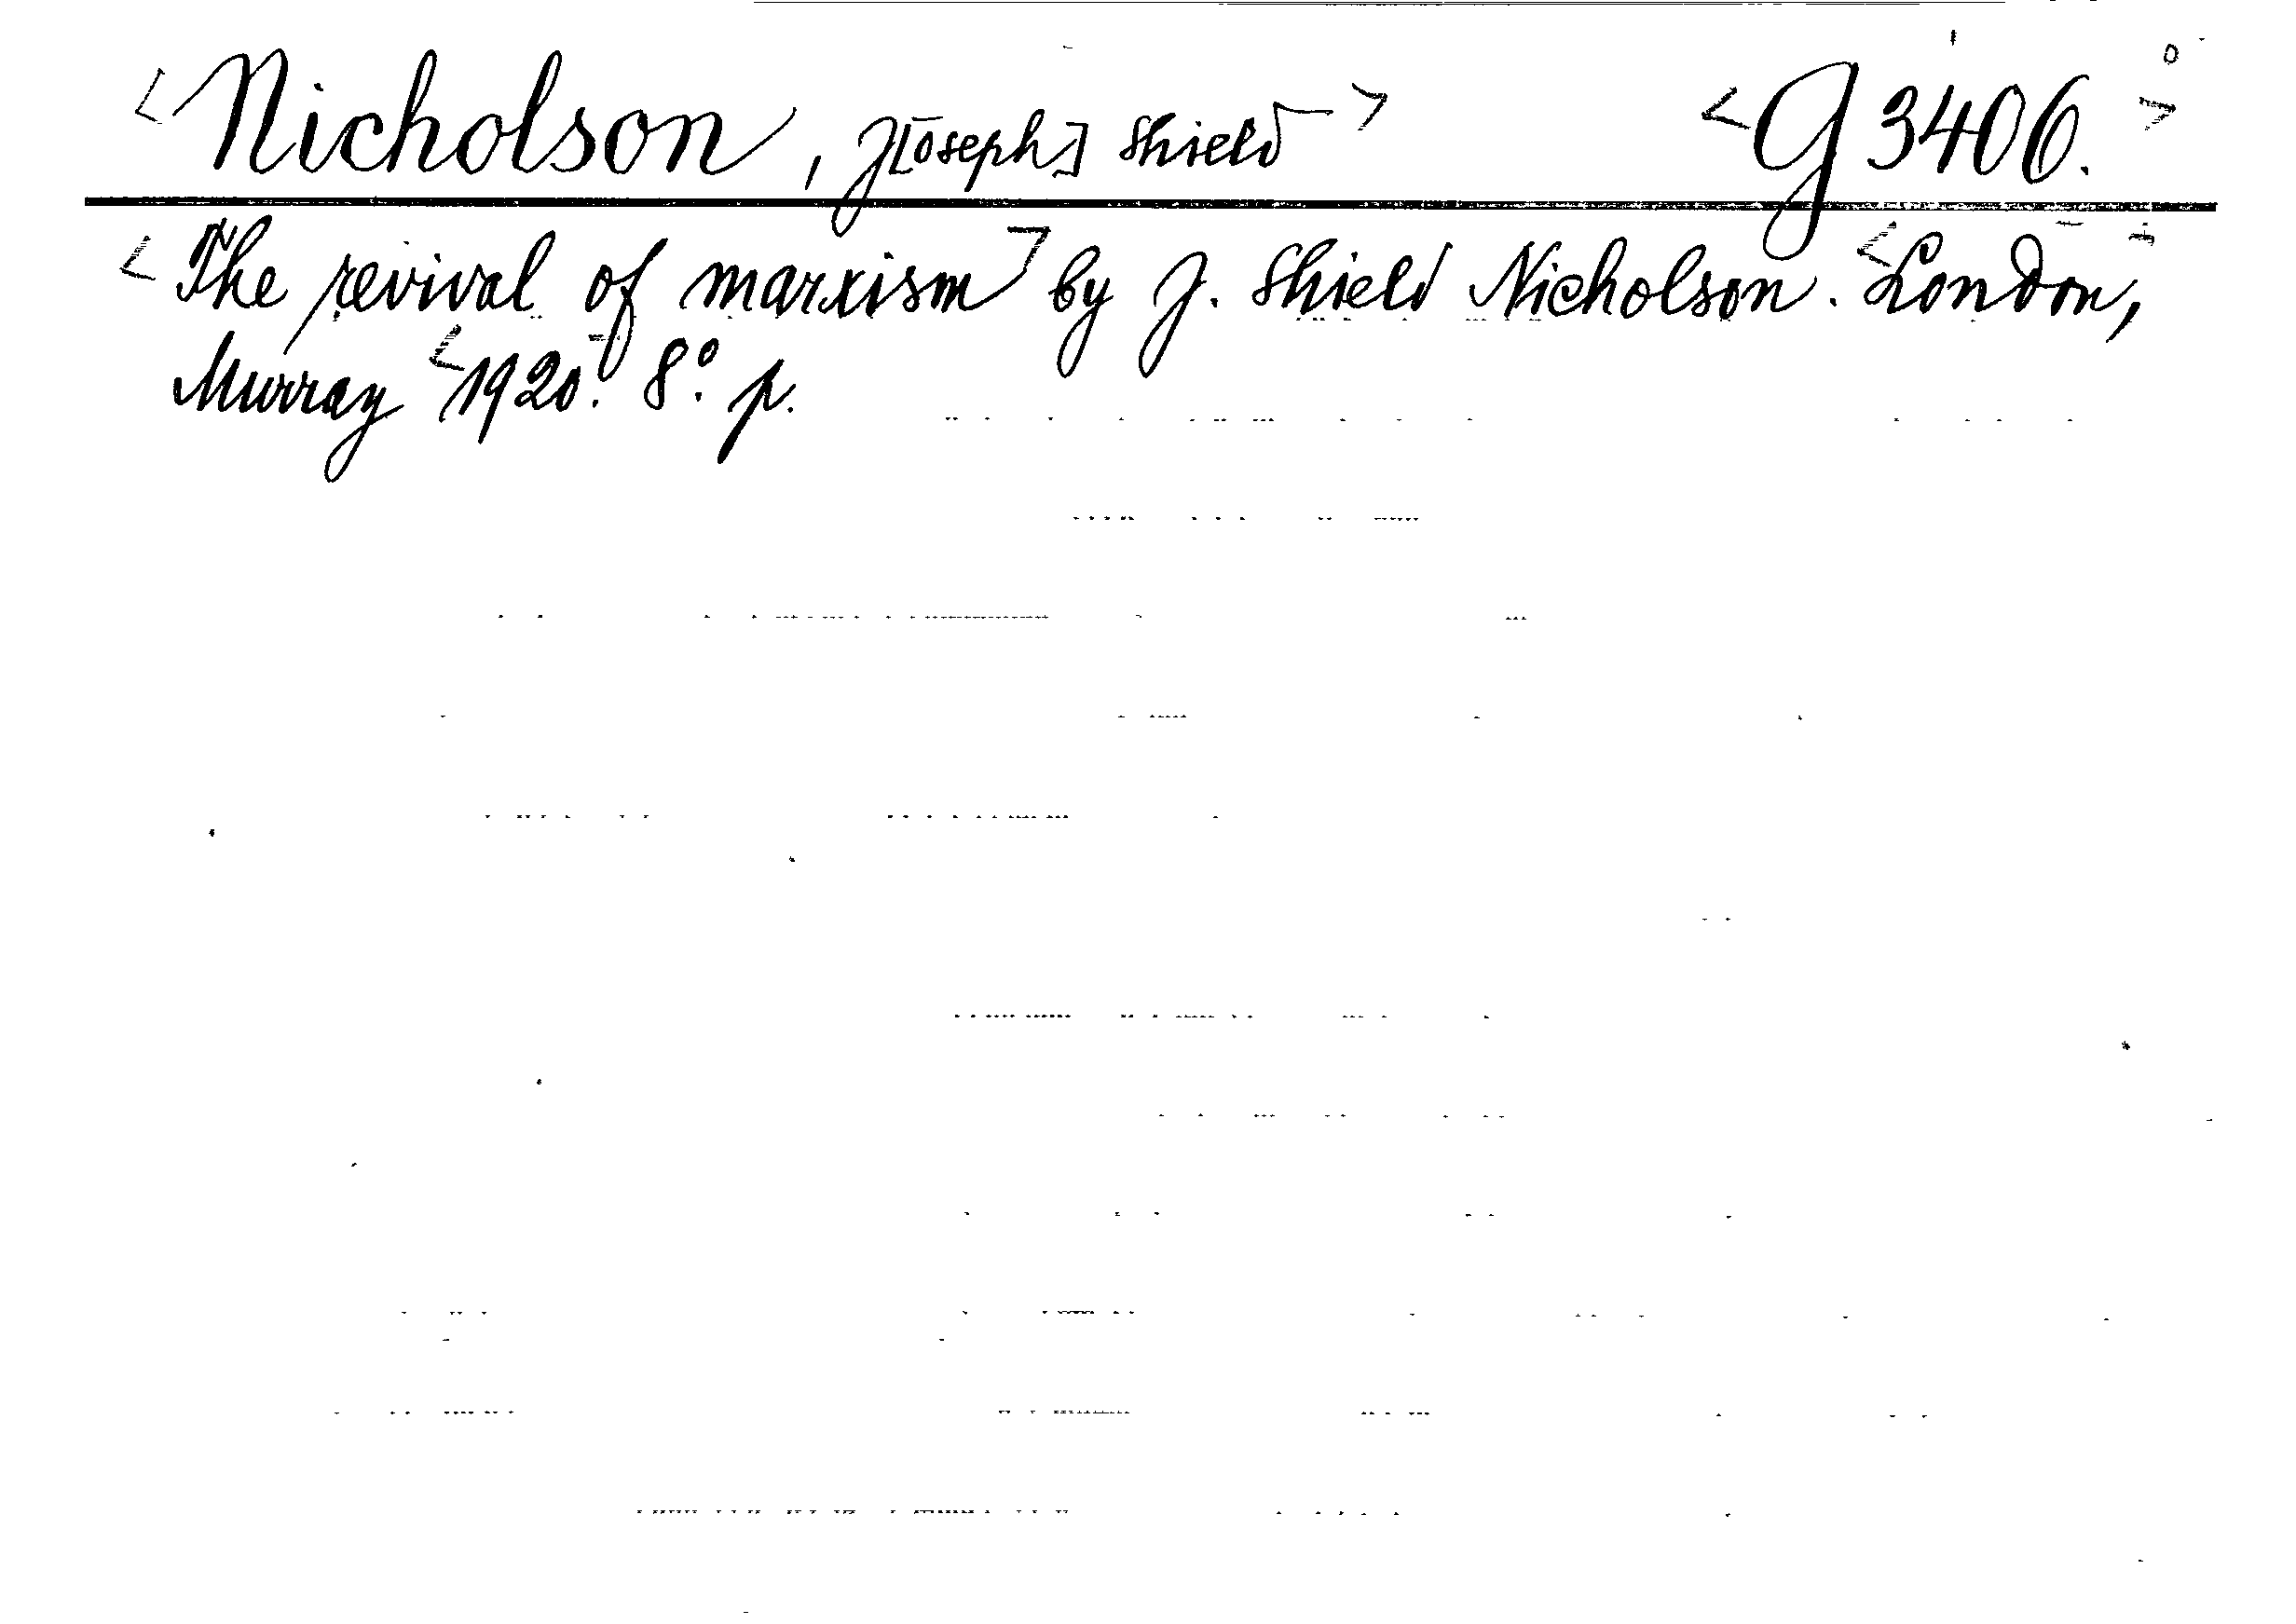 <Nicholson, J[oseph] Shield> <G 3406.>
<The revival of marxism> by J. Shield Nicholson. <London,
Murray <1920.> 8° p.